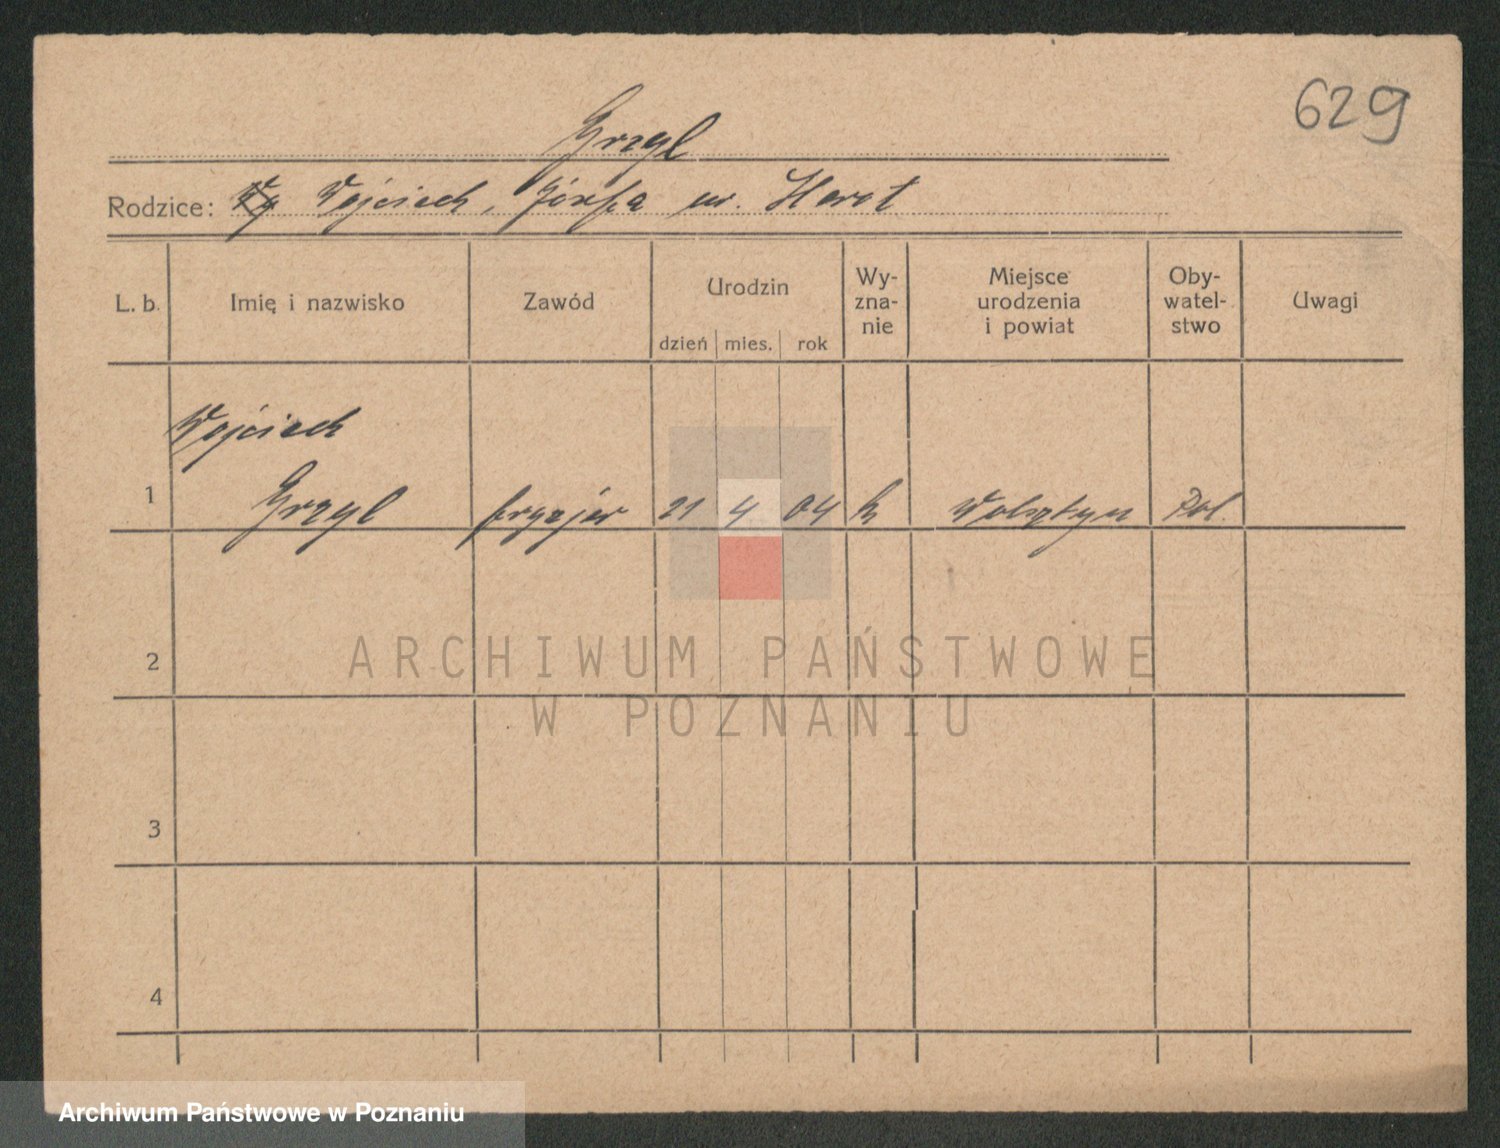 629
Grzyl
Rodzice: Wojciech, Józefa ur. Herot
L. b.
Imię i nazwisko
Zawód
Urodzin
dzień mies. rok
Wy-
zna-
nie
Miejsce
urodzenia
i powiat
Oby-
watel-
stwo
Uwagi
Wojciech
1 Grzyl fryzjer 21 4 04 k Wolsztyn Pol.
2
3
4
ARCHIWUM PAŃSTWOWE
W POZNANIU
Archiwum Państwowe w Poznaniu